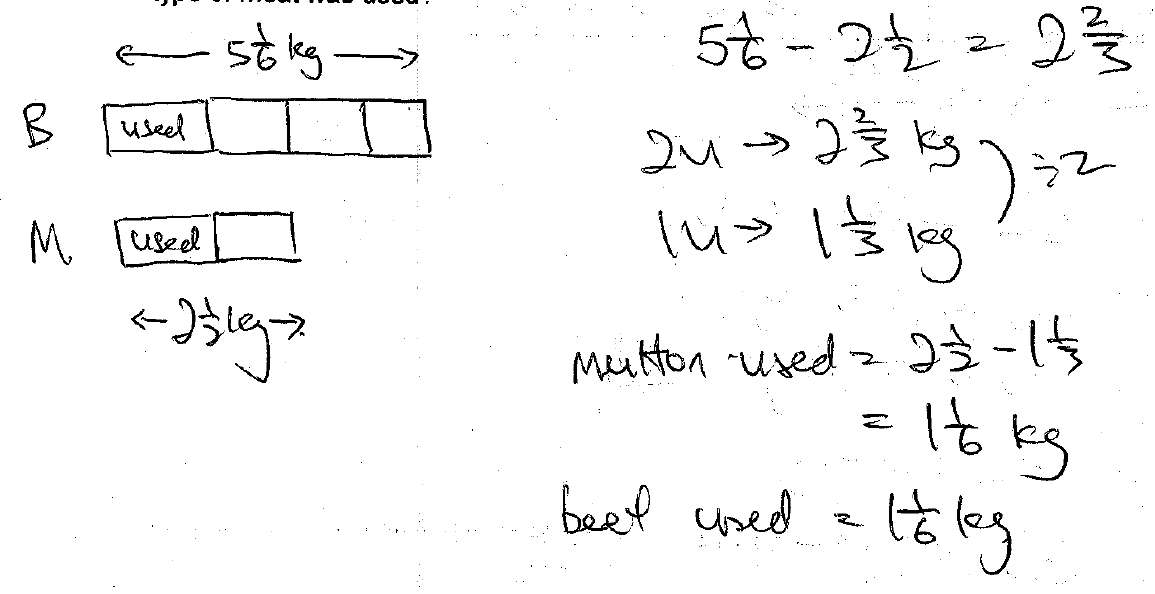 type of meat was used?
5 1/6 kg
B used
M used
2 1/2 kg
5 1/6 - 2 1/2 = 2 2/3
2u → 2 2/3 kg ) ÷2
1u → 1 1/3 kg
Mutton used = 2 1/2 - 1 1/3
= 1 1/6 kg
beef used = 1 1/6 kg